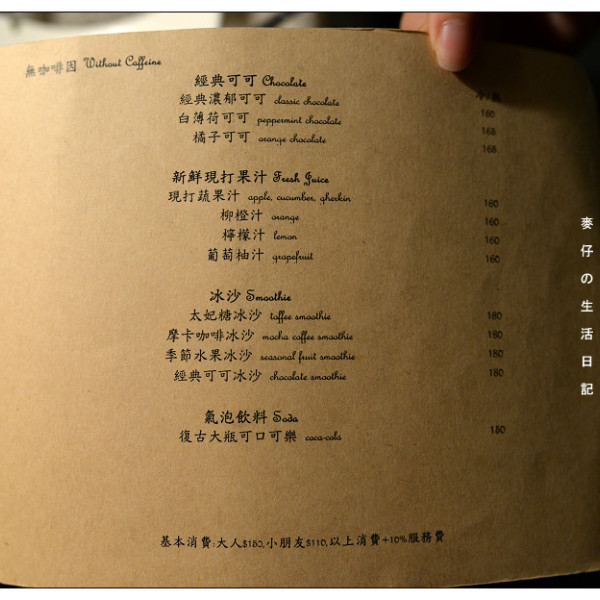 無咖啡因 Without Caffeine
經典可可 Chocolate
冷/熱
經典濃郁可可 classic chocolate 160
白薄荷可可 peppermint chocolate 165
橘子可可 orange chocolate 165
新鮮現打果汁 Fresh Juice
現打蔬果汁 apple, cucumber, gherkin 160
柳橙汁 orange 160
檸檬汁 lemon 160
葡萄柚汁 grapefruit 160
冰沙 Smoothie
太妃糖冰沙 toffee smoothie 180
摩卡咖啡冰沙 mocha coffee smoothie 180
季節水果冰沙 seasonal fruit smoothie 180
經典可可冰沙 chocolate smoothie 180
氣泡飲料 Soda
復古大瓶可口可樂 coca-cola 150
基本消費:大人$150,小朋友$110,以上消費+10%服務費
麥仔の生活日記